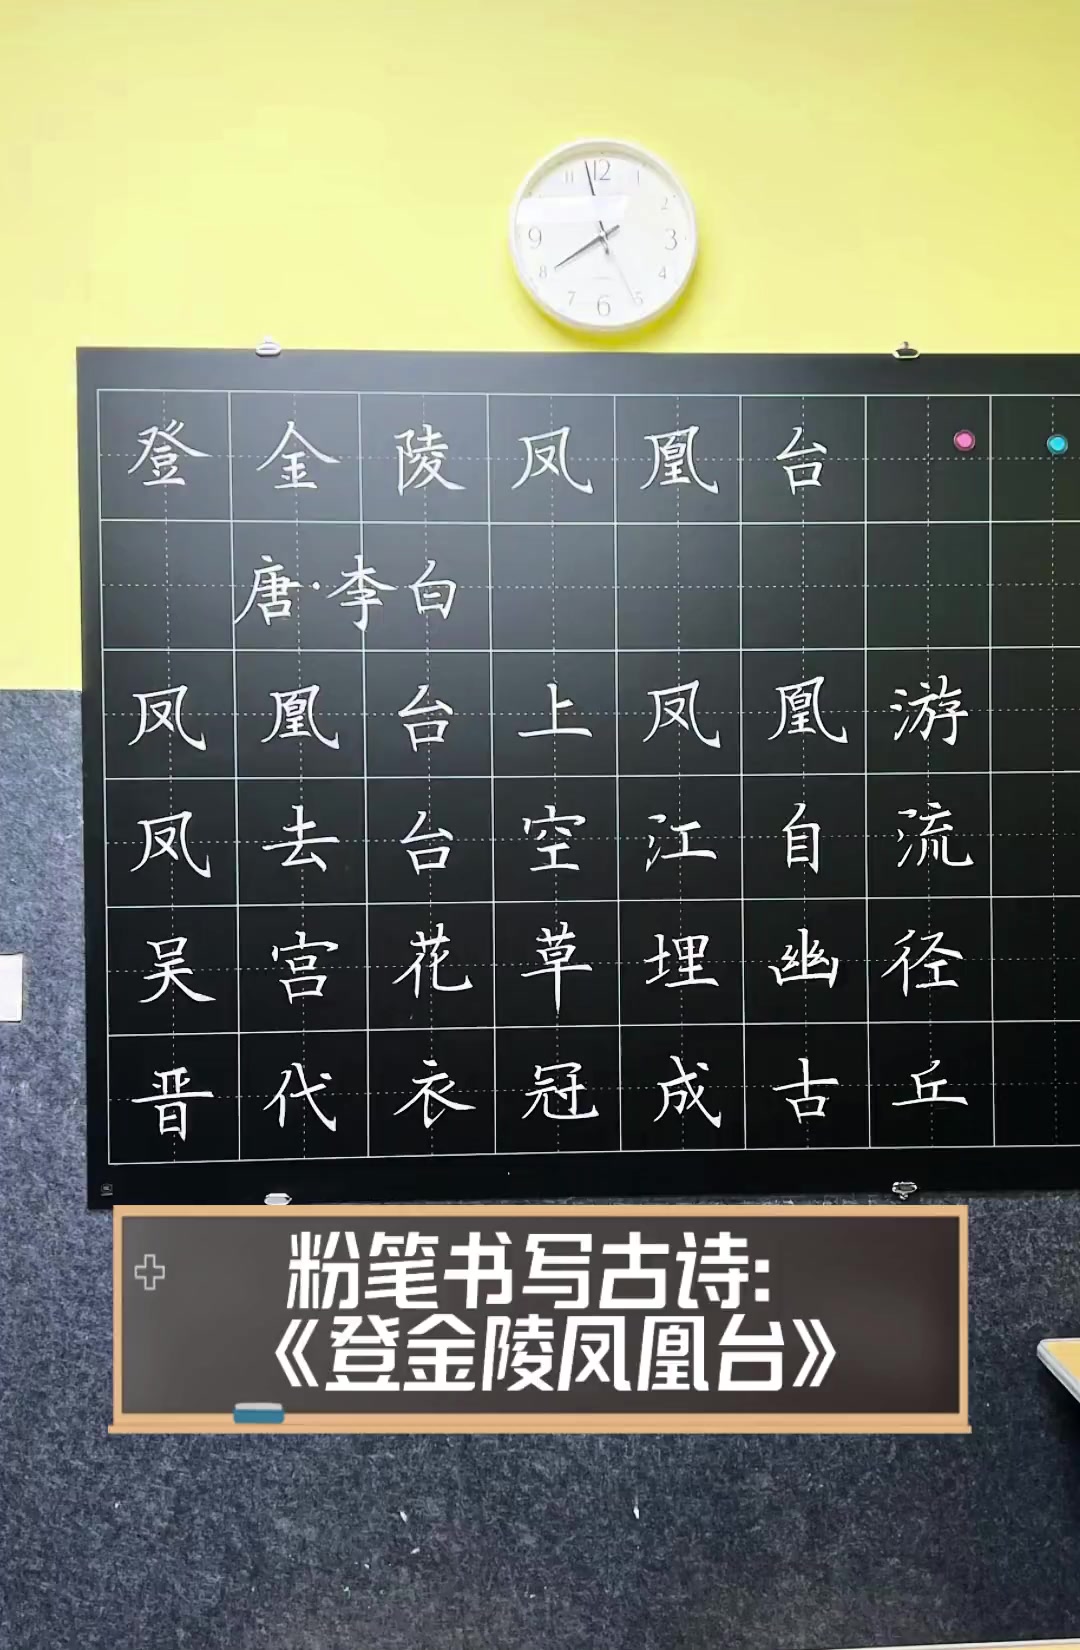 11 12 1
2
9 3
8 4
7 6 5
登金陵凤凰台
唐·李白
凤凰台上凤凰游
凤去台空江自流
吴宫花草埋幽径
晋代衣冠成古丘
粉笔书写古诗:
《登金陵凤凰台》